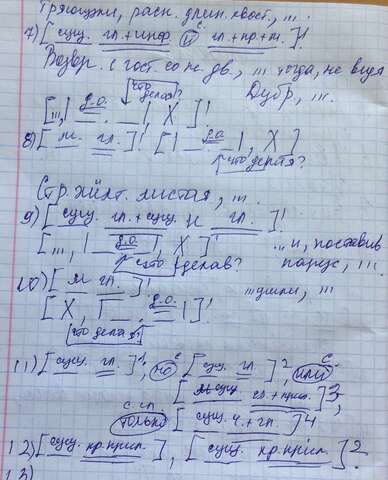 Трясогузки, расп. длин. хвост., ...
7) [ сущ. гл. + инф. и гл. + пр + м. ]!
Возвр. с гост. со не дв., ... тогда, не видя
что делая?
д.о. X ]!
8) [ м. гл. ]! [ д.о. , X ]
что делая?
Стр. листая, ...
9) [ сущ. гл. + сущ. и гл. ]!
[ ..., д.о. , X ]! ... и, поставив
что сделав? ...
10) [ м гл. ]! ... шли, ...
[ X, д.о. ]!
что делая?
11) [ сущ. гл. ]1, но [ сущ. гл. ]2, или
[ сущ. гл. + прил. ]3,
с. сл.
только [ сущ. ч. + гл. ]4
12) [ сущ. кр. прил. ], [ сущ. кр. прил. ]2.
13)